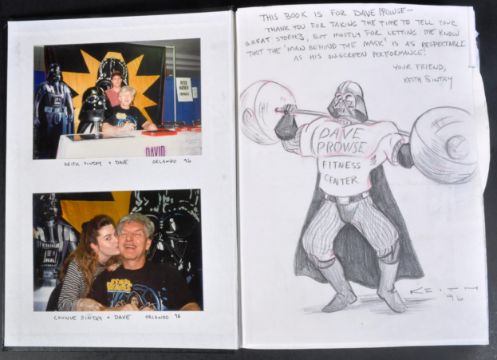 DAVID
KEITH BINTRY + DAVE ORLANDO 96
STAR WARS
CONNIE BINTRY + DAVE ORLANDO 96
THIS BOOK IS FOR DAVE PROWSE—
THANK YOU FOR TAKING THE TIME TO TELL YOUR
GREAT STORIES, BUT MOSTLY FOR LETTING ME KNOW
THAT THE 'MAN BEHIND THE MASK' IS AS RESPECTABLE
AS HIS ONSCREEN PERFORMANCE!
YOUR FRIEND,
KEITH BINTRY
DAVE
PROWSE
FITNESS
CENTER
KEITH
96